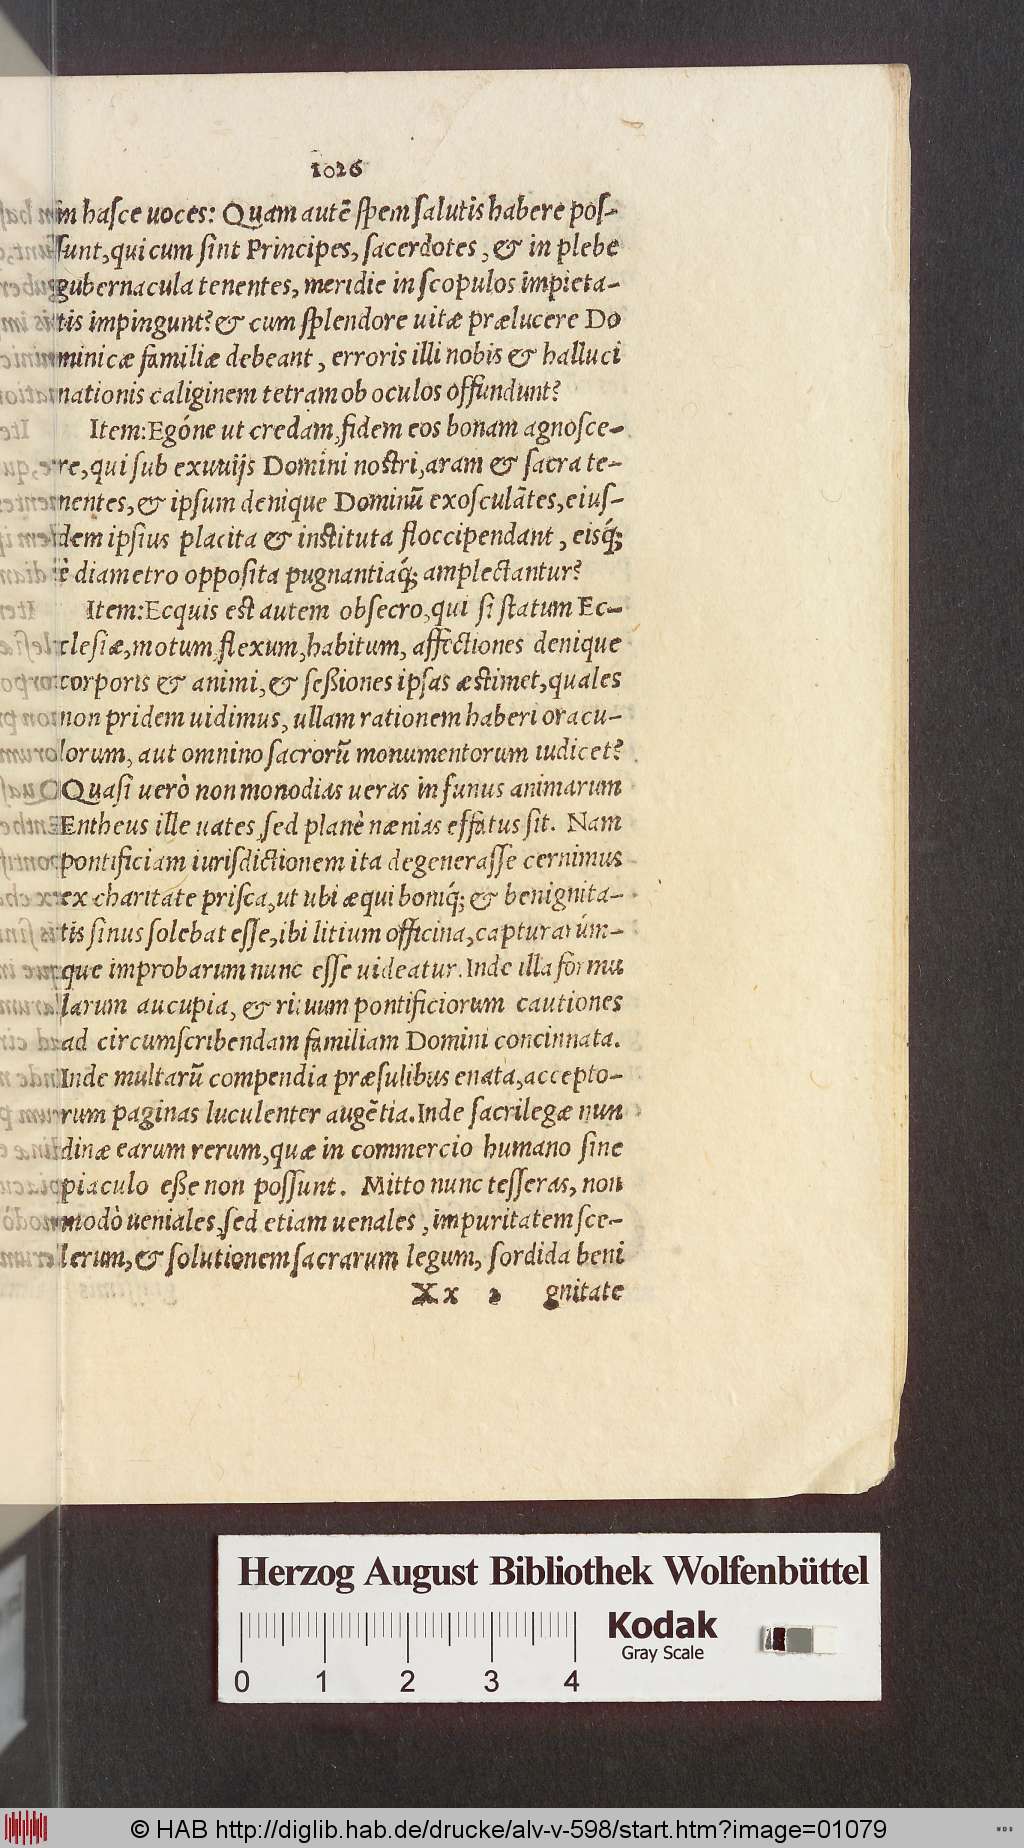 1026
in hasce uoces: Quam autē spem salutis habere pos-
sunt, qui cum sint Principes, sacerdotes, & in plebe
gubernacula tenentes, meridie in scopulos impieta-
tis impingunt? & cum splendore uitæ prælucere Do
minicæ familiæ debeant, erroris illi nobis & halluci
nationis caliginem tetram ob oculos offundunt?
Item: Egóne ut credam, fidem eos bonam agnosce-
re, qui sub exuuijs Domini nostri, aram & sacra te-
nentes, & ipsum denique Dominū exosculātes, eius-
dem ipsius placita & instituta floccipendant, eisq́;
è diametro opposita pugnantiaq́; amplectantur?
Item: Ecquis est autem obsecro, qui si statum Ec-
clesiæ, motum, flexum, habitum, affectiones denique
corporis & animi, & seßiones ipsas æstimet, quales
non pridem uidimus, ullam rationem haberi oracu-
lorum, aut omnino sacrorū monumentorum iudicet?
Quasi uerò non monodias ueras in funus animarum
Entheus ille uates, sed planè nænias effatus sit. Nam
pontificiam iurisdictionem ita degenerasse cernimus
ex charitate prisca, ut ubi æqui boniq́; & benignita-
tis sinus solebat esse, ibi litium officina, capturarúm-
que improbarum nunc esse uideatur. Inde illa formu
larum aucupia, & rituum pontificiorum cautiones
ad circumscribendam familiam Domini concinnata.
Inde multarū compendia præsulibus enata, accepto-
rum paginas luculenter augētia. Inde sacrilegæ nun
dinæ earum rerum, quæ in commercio humano sine
piaculo eße non possunt. Mitto nunc tesseras, non
modò ueniales, sed etiam uenales, impuritatem sce-
lerum, & solutionem sacrarum legum, sordida beni
Xx 2 gnitate
Herzog August Bibliothek Wolfenbüttel
Kodak
Gray Scale
0 1 2 3 4
© HAB http://diglib.hab.de/drucke/alv-v-598/start.htm?image=01079